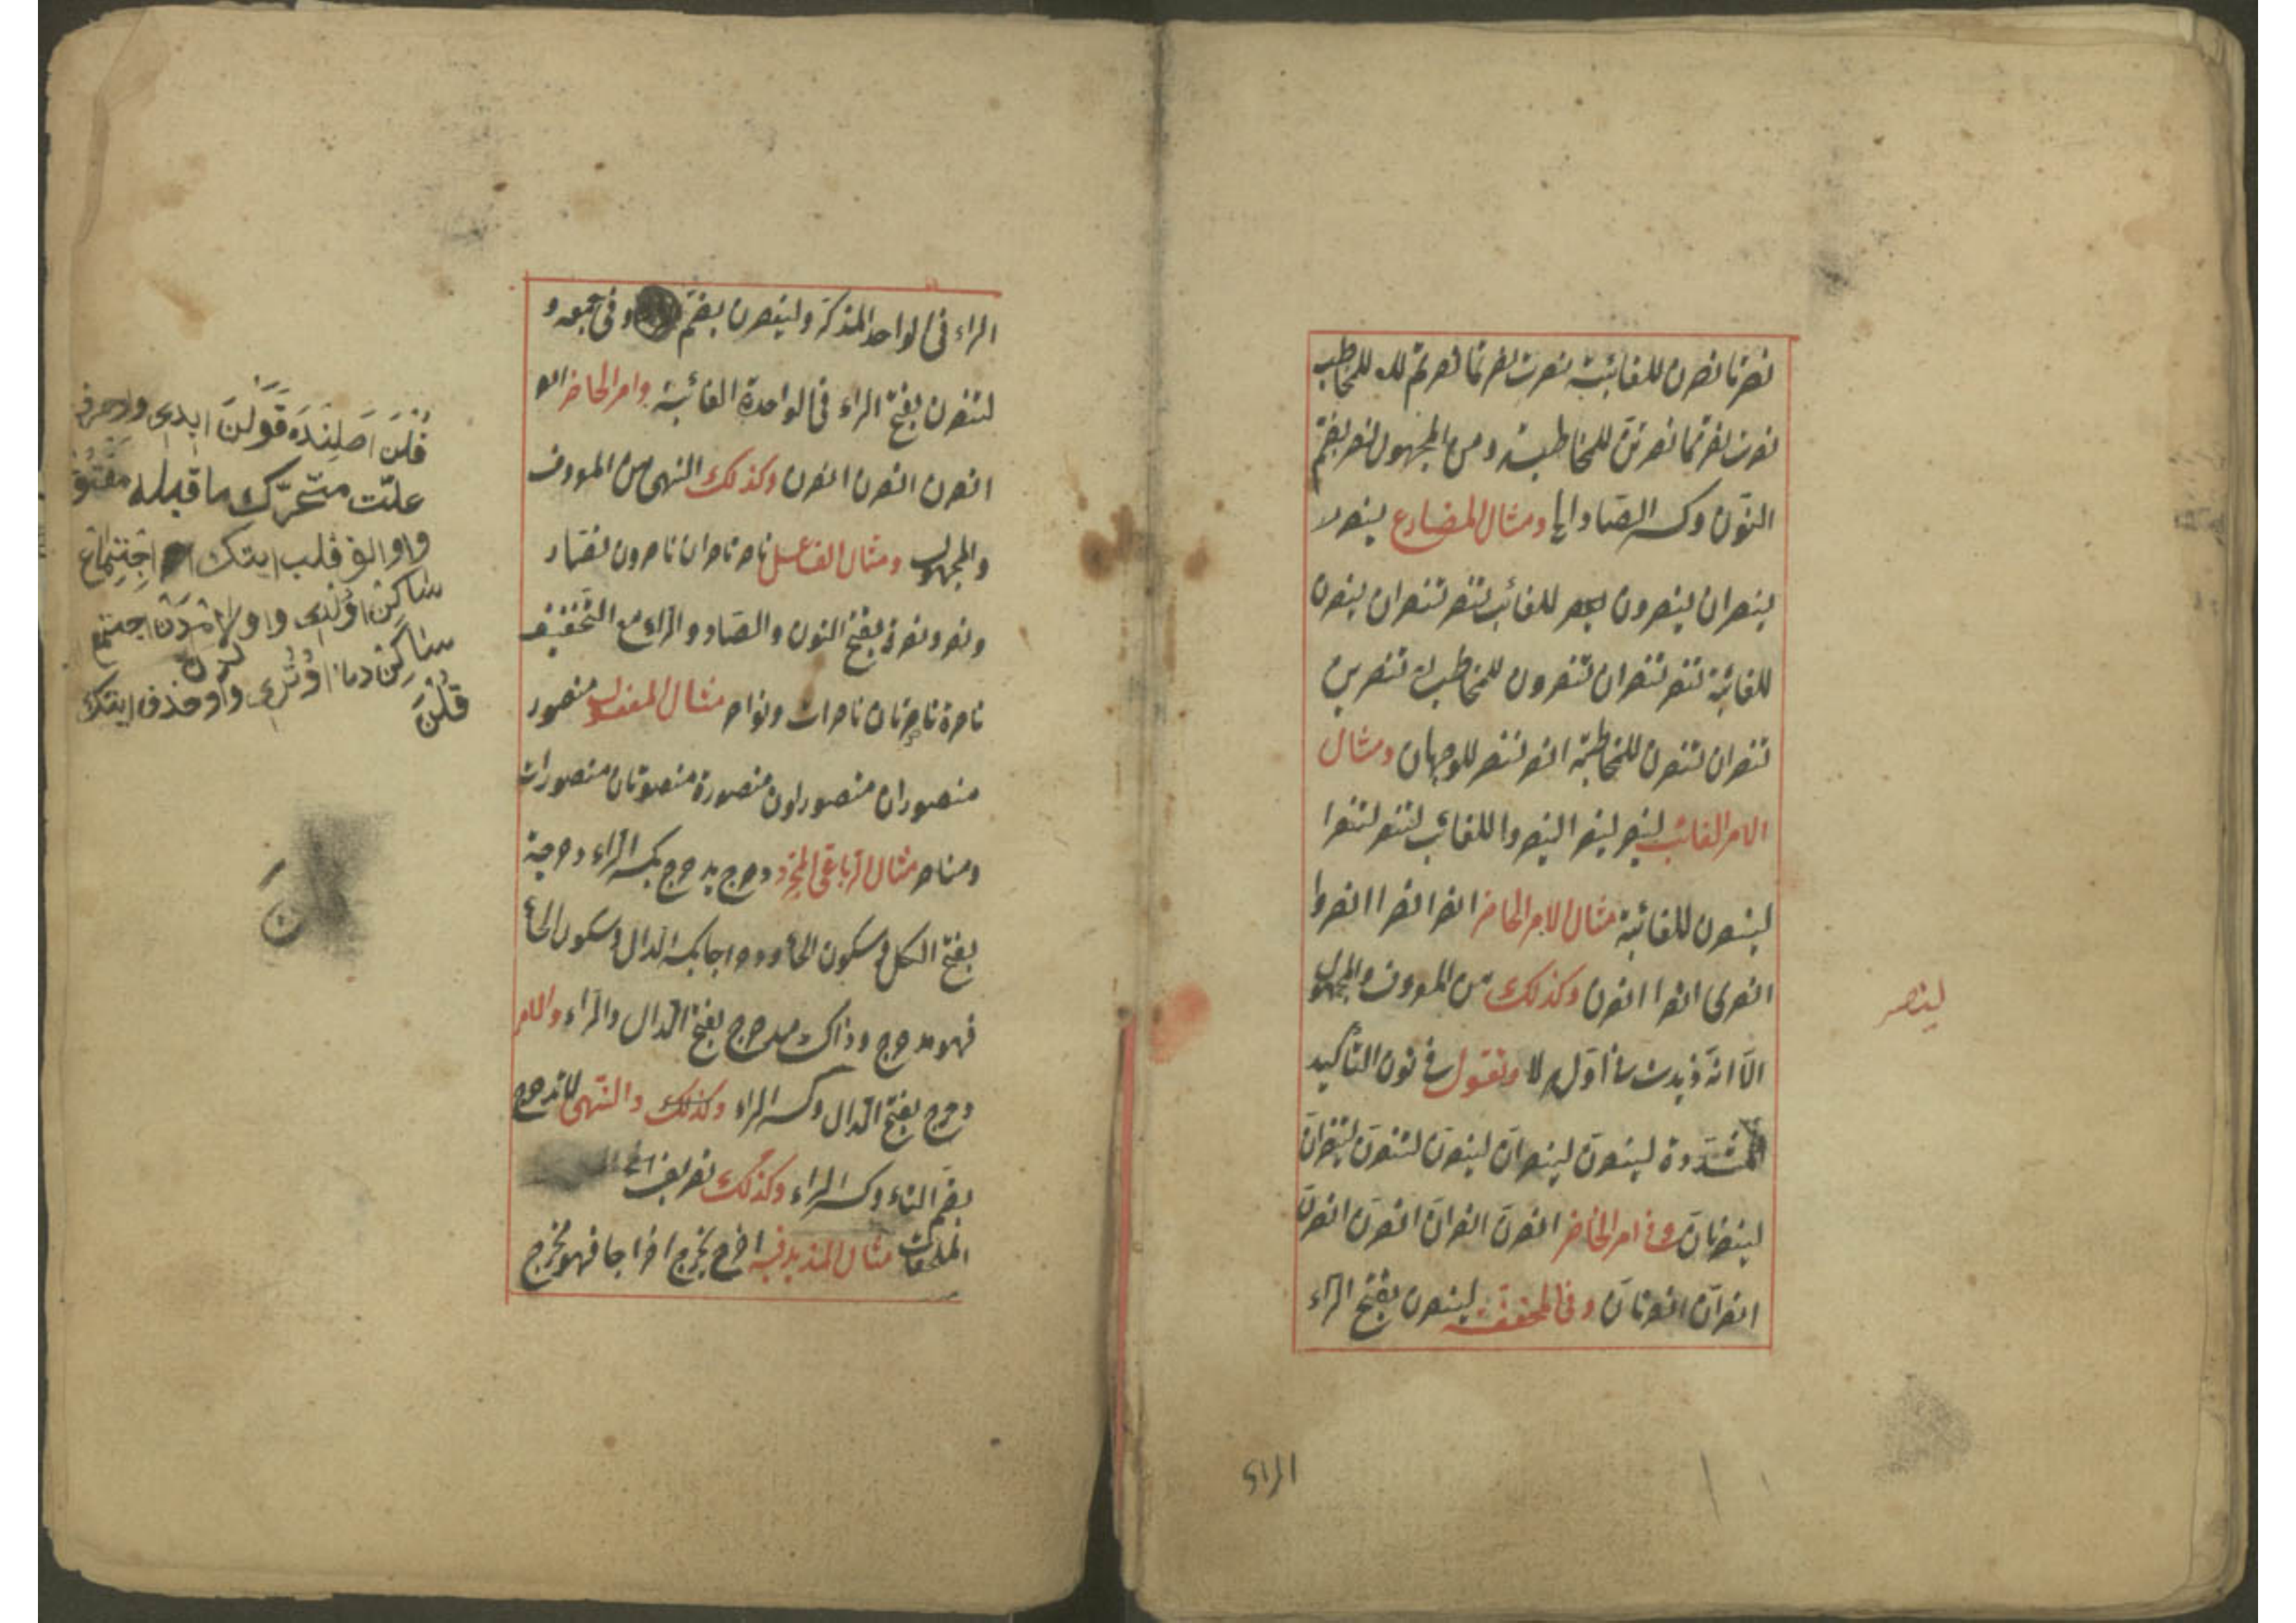 نصرتا نصرن للغائبة نصرت نصرتما نصرتم للمخاطب
نصرت نصرتما نصرتن للمخاطبة ومن المجهول نصر بضم
النون وكسر الصاد ومثال المضارع ينصر
ينصران ينصرون للغائب تنصر تنصران ينصرن
للغائبة تنصر تنصران تنصرون للمخاطب تنصرين
تنصران تنصرن للمخاطبة انصر ننصر ومثال
الامر الغائب لينصر لينصرا لينصروا للغائب لتنصر لتنصرا
لينصرن للغائبة مثال الامر الحاضر انصر انصرا انصروا
انصرى انصرا انصرن وكذلك من المعروف والمجهول
الا انه زيدت اوله لا وتقول فى نون التأكيد
المشددة لينصرن لينصران لينصرن لتنصرن لتنصران
لينصرنان وفى امر الحاضر انصرن انصران انصرن انصرن
انصران انصرنان وفى المخففة لينصرن بفتح الراء
لينصر
الراء فى الواحد المذكر ولينصرن بضم وفى جمعه و
لتنصرن بفتح الراء فى الواحدة الغائبة وامر الحاضر
انصرن انصرن انصرن وكذلك النهى من المعروف
والمجهول ومثال الفاعل ناصر ناصران ناصرون نصار
ونصر ونصرة بفتح النون والصاد والراء مع التخفيف
ناصرة ناصرتان ناصرات ونواصر مثال المفعول منصور
منصوران منصورون منصورة منصورتان منصورات
ومناصر مثال الرباعى المجرد دحرج يدحرج بكسر الراء دحرجة
بفتح الكل وسكون الحاء ودحراجا بكسر الدال وسكون الحاء
فهو مدحرج وذاك مدحرج بفتح الدال والراء والامر
دحرج بفتح الدال وكسر الراء وكذلك والنهى لا تدحرج
بضم التاء وكسر الراء وكذلك تصريف
الملحقات مثال المزيد فيه اخرج يخرج اخراجا فهو مخرج
قلن اصلنده قولن ايدى واو حرف
علت متحرك ما قبله مفتوح
واو الفه قلب ايتدك اجتماع
ساكنين اولدى واو لامدن اجتماع
ساكنين دن اوترى واو حذف ايتدك
قلن
ن